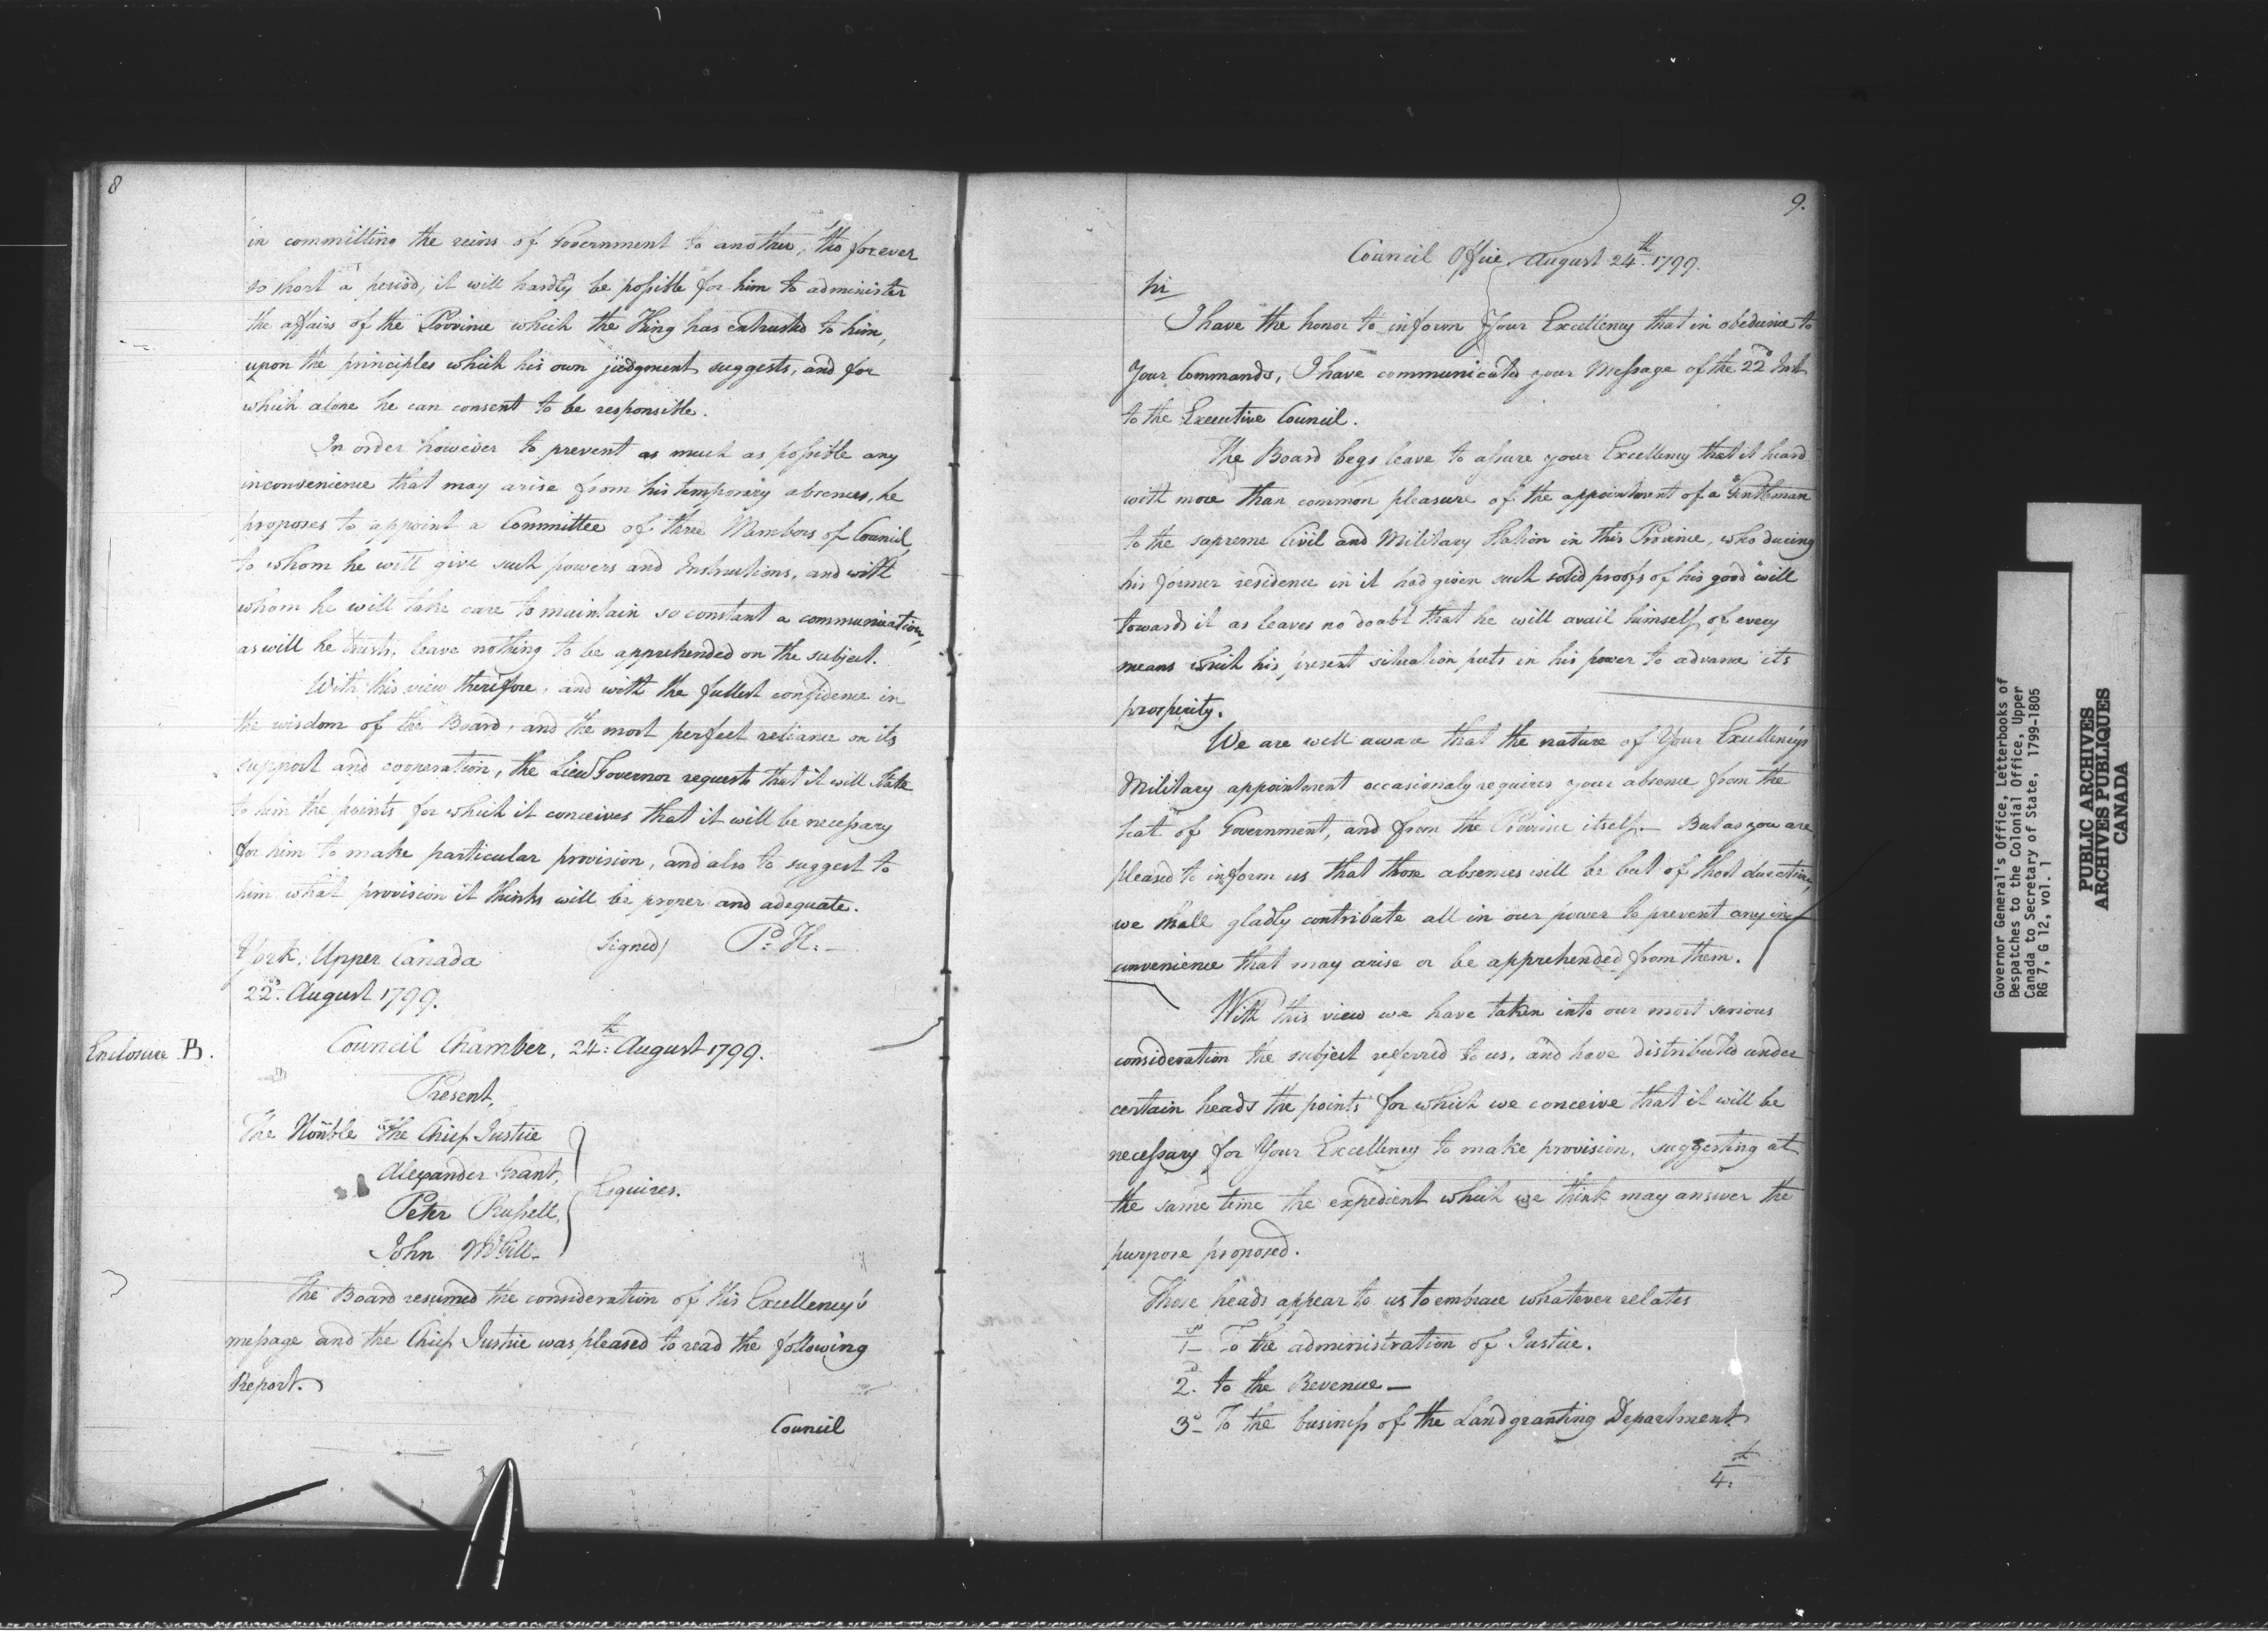 8
in committing the reins of Government to another, tho forever
so short a period, it will hardly be possible for him to administer
the affairs of the Province which the King has entrusted to him,
upon the principles which his own judgment suggests, and for
which alone he can consent to be responsible.
In order however to prevent as much as possible any
inconvenience that may arise from his temporary absences, he
proposes to appoint a Committee of three Members of Council,
to whom he will give such powers and Instructions, and with
whom he will take care to maintain so constant a communication,
as will he trusts, leave nothing to be apprehended on the subject.
With this view therefore, and with the fullest confidence in
the wisdom of the Board, and the most perfect reliance on its
support and cooperation, the Lieu Governor requests that it will State
to him the points for which it conceives that it will be necessary
for him to make particular provision, and also to suggest to
him what provision it thinks will be proper and adequate.
York, Upper Canada (signed) P. H.
22d. August 1799.
Enclosure B. Council Chamber, 24th: August 1799.
Present,
The Honble The Chief Justice
Alexander Grant,
Peter Russell, Esquires.
John McGill
The Board resumed the consideration of His Excellency's
message and the Chief Justice was pleased to read the following
Report.
Council
9.
Council Office August 24th. 1799.
Sir
I have the honor to inform Your Excellency that in obedience to
Your Commands, I have communicated your Message of the 22d Inst
to the Executive Council.
The Board begs leave to assure your Excellency that it heard
with more than common pleasure of the appointment of a Gentleman
to the supreme Civil and Military Station in this Province, who during
his former residence in it had given such solid proofs of his good will
towards it as leaves no doubt that he will avail himself of every
means which his present situation puts in his power to advance its
prosperity.
We are well aware that the nature of Your Excellency's
Military appointment occasionaly requires your absence from the
Seat of Government, and from the Province itself. But as you are
pleased to inform us that those absences will be but of short duration,
we shall gladly contribute all in our power to prevent any in
convenience that may arise or be apprehended from them.
With this view we have taken into our most serious
consideration the subject referred to us, and have distributed under
certain heads the points for which we conceive that it will be
necessary for Your Excellency to make provision, suggesting at
the same time the expedient which we think may answer the
purpose proposed.
Those heads appear to us to embrace whatever relates
1st To the administration of Justice.
2d. to the Revenue—
3d To the business of the Land granting Department
4th:
Governor General's Office, Letterbooks of
Despatches to the Colonial Office, Upper
Canada to Secretary of State, 1799-1805
RG 7, G 12, vol. 1
PUBLIC ARCHIVES
ARCHIVES PUBLIQUES
CANADA